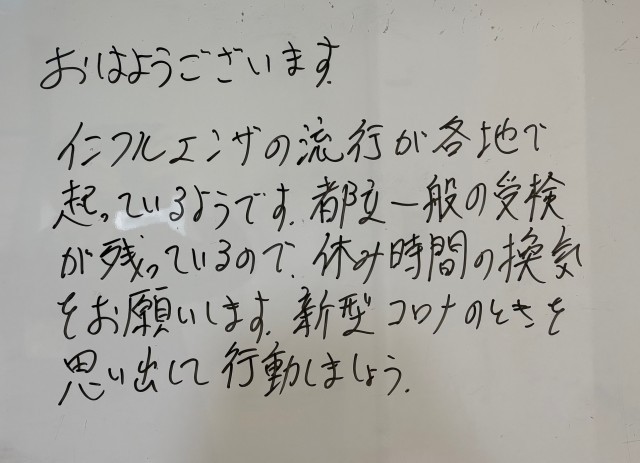 おはようございます.
インフルエンザの流行が各地で
起っているようです.都立一般の受検
が残っているので、休み時間の換気
をお願いします.新型コロナのときを
思い出して行動しましょう.